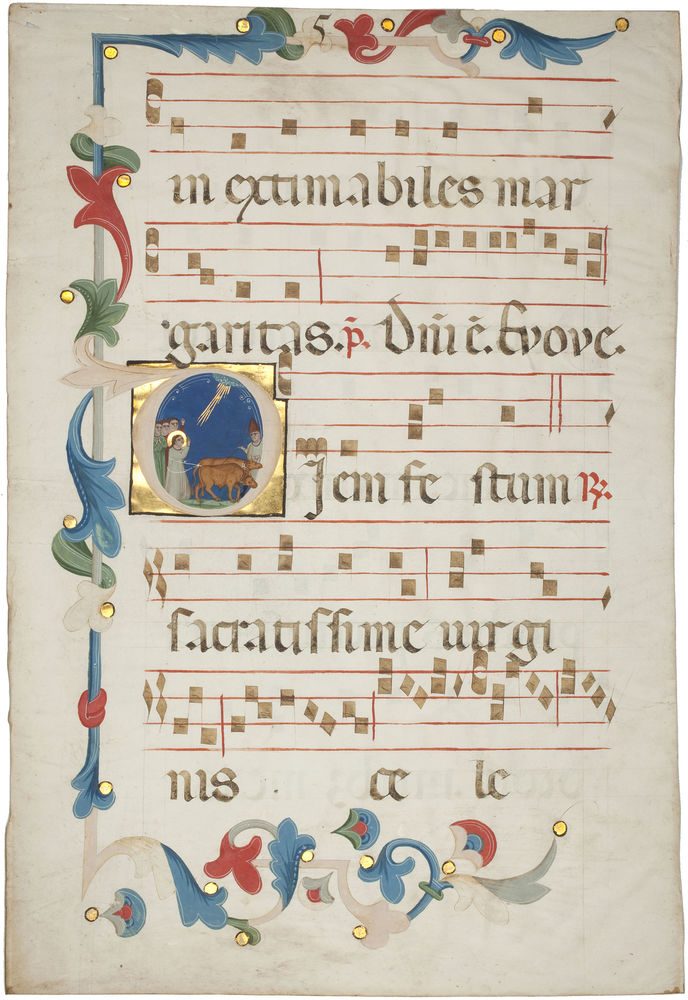 5
in extimabiles mar
garitas. p̄. Dn̄i ē. Evove.
DIem fe stum ℟.
sacratissime uirgi
nis ce le